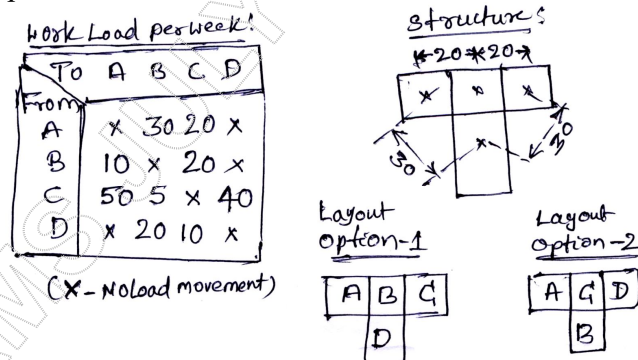 Work Load per week:
To A B C D
From
A × 30 20 ×
B 10 × 20 ×
C 50 5 × 40
D × 20 10 ×
(X - No Load movement)
Structure:
20 20
30
30
Layout
Option-1
A B C
D
Layout
Option-2
A C D
B